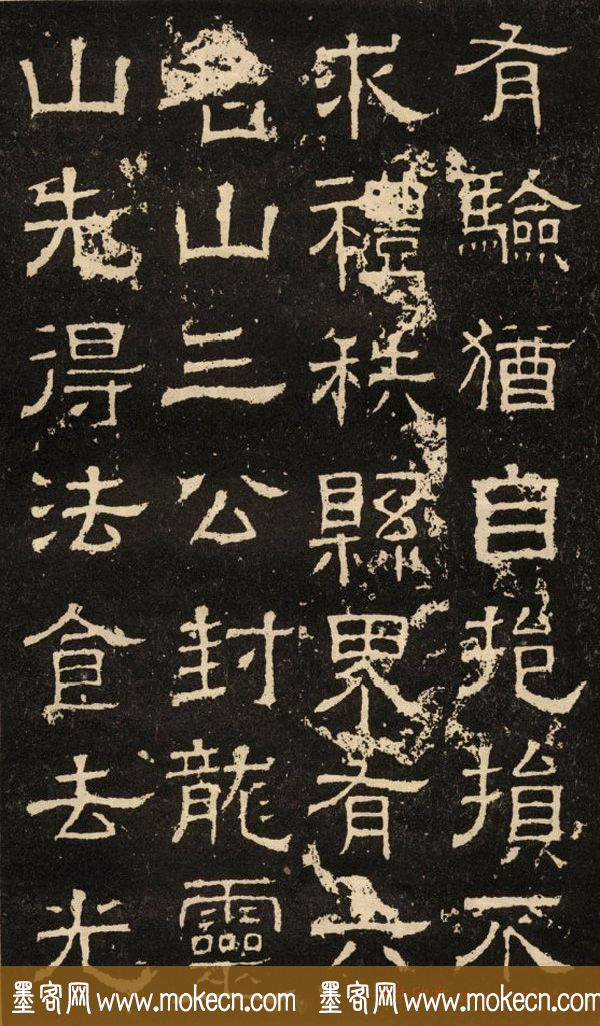 有驗猶自挹損不
求禮秩縣界有六
名山三公封龍靈
山先得法食去光
墨客网 www.mokecn.com 墨客网 www.mokecn.com